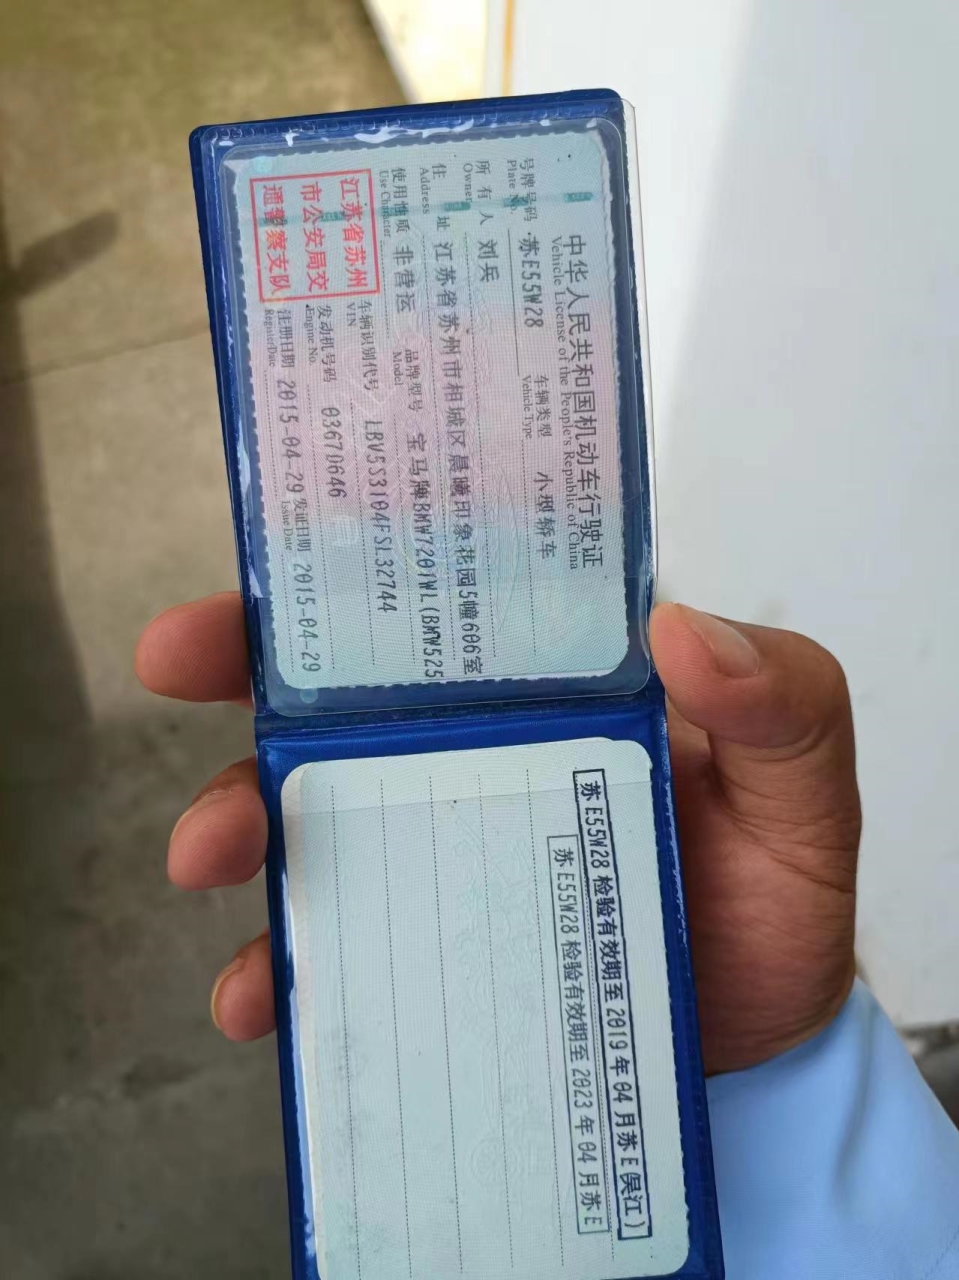 中华人民共和国机动车行驶证
Vehicle License of the People's Republic of China
号牌号码 苏E55W28 车辆类型 小型轿车
Plate No. Vehicle Type
所有人 刘兵
Owner
住址 江苏省苏州市相城区晨曦印象花园5幢606室
Address
使用性质 非营运 品牌型号 宝马牌BMW7201WL(BMW525
Use Character Model
江苏省苏州
市公安局交
通警察支队
车辆识别代号 LBV5S3104FSL32744
VIN
发动机号码 03670646
Engine No.
注册日期 2015-04-29 发证日期 2015-04-29
Register Date Issue Date
苏E55W28 检验有效期至 2019 年 04 月苏E(吴江)
苏E55W28 检验有效期至 2023 年 04 月苏E